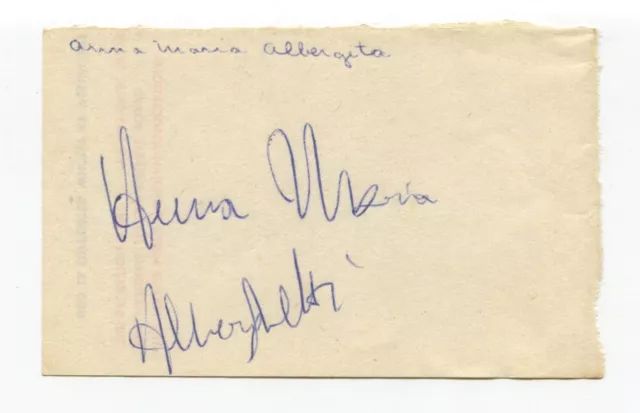 anna maria albergeta
Anna Maria
Alberghetti